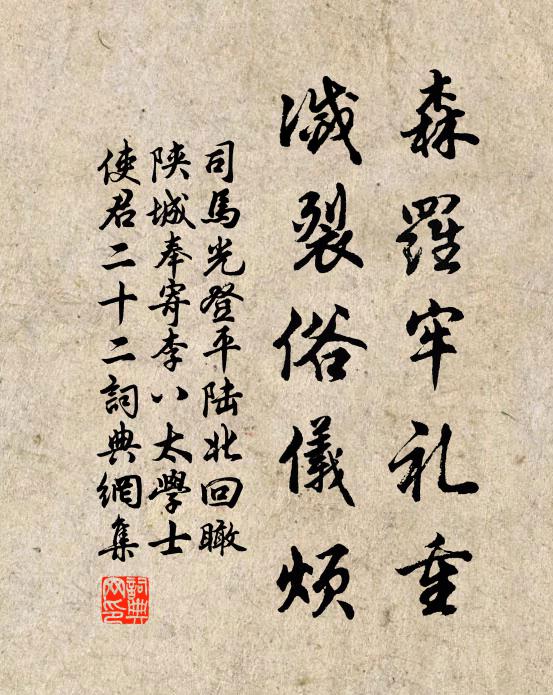 森羅牢礼重
滅裂俗儀煩
司馬光登平陸北回瞰
陝城奉寄李八太學士
使君二十二詞典網集
詞典网印